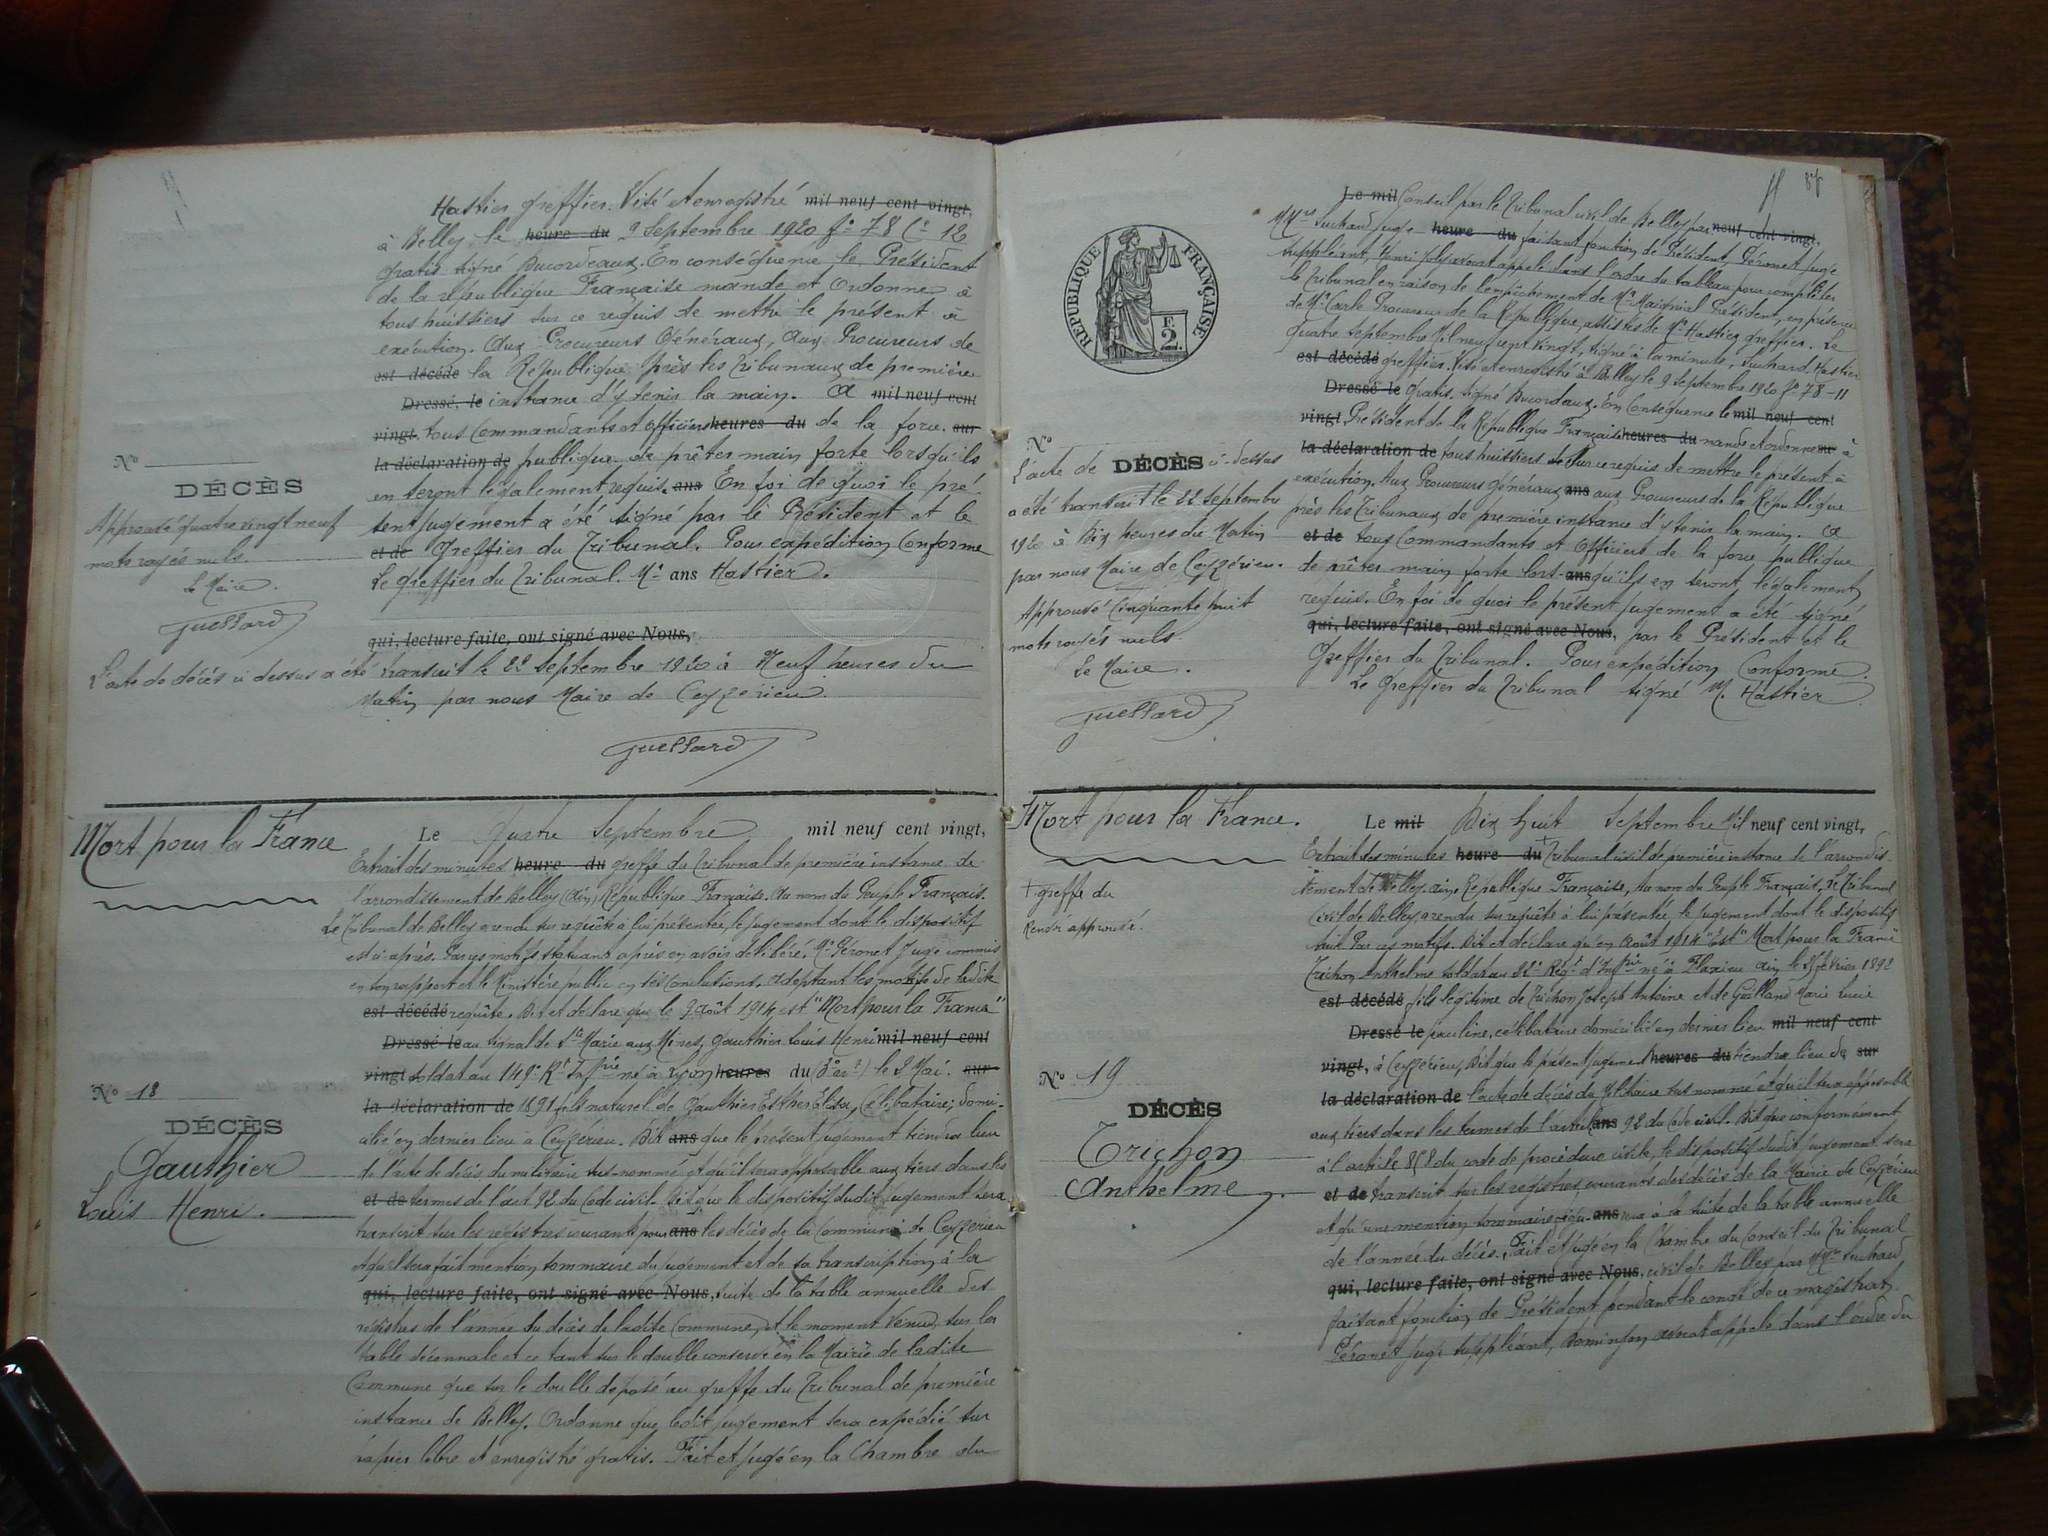 Hastier greffier. Visé et enregistré mil neuf cent vingt,
à Belley le heure du 9 Septembre 1920 fo 78 Ce 12
gratis signé Ducordeaux. En conséquence le Président
de la république Française mande et Ordonne à
tous huissiers sur ce requis de mettre le présent à
exécution. Aux Procureurs Généraux, Aux Procureurs de
est décédé la République près les tribunaux de première
Dressé, le instance d'y tenir la main. A mil neuf cent
vingt. tous Commandants et officiers heures du de la force sur
la déclaration de publique de prêter main forte lorsqu'ils
en seront légalement requis. ans En foi de quoi le pré-
sent jugement a été signé par le Président et le
et de Greffier du Tribunal. Pour expédition Conforme
Le greffier du Tribunal. Mr ans Hastier.
qui, lecture faite, ont signé avec Nous,
L'acte de décès ci dessus a été transcrit le 22 Septembre 1920 à Neuf heures du
Matin par nous Maire de Ceyzérieu.
Guessard
No
DÉCÈS
Approuvé quatre vingt neuf
mots rayés nuls.
Le Maire.
Guessard
Mort pour la France
No 18
DÉCÈS
Gauthier
Louis Henri.
Le Quatre Septembre mil neuf cent vingt,
Extrait des minutes heure du greffe du Tribunal de première instance de
l'arrondissement de Belley (Ain) République Française. Au nom du Peuple Français.
Le Tribunal de Belley a rendu sur requête à lui présentée, le jugement dont le dispositif
est ci-après. Par ces motifs statuant après en avoir délibéré, Mr Péronet Juge commis
en son rapport et le Ministère public en ses conclusions, adoptant les motifs de ladite
est décédé requête. Dit et déclare que le 9 août 1914 est "Mort pour la France"
Dressé le au signal de Ste Marie aux Mines, Gauthier Louis Henri mil neuf cent
vingt soldat au 149e Rt Infrie né à Lyon heures du (3e art) le 2 Mai. sur
la déclaration de 1891 fils naturel de Gauthier Esther Elisa, Célibataire, domi-
cilié en dernier lieu à Ceyzérieu. Dit ans que le présent jugement tiendra lieu
de l'acte de décès du militaire sus-nommé et qu'il sera opposable aux tiers dans les
et de termes de l'art 92 du Code civil. Dit que le dispositif dudit jugement sera
transcrit sur les registres courants pour ans les décès de la Commune de Ceyzérieu
et qu'il sera fait mention sommaire du jugement et de sa transcription à la
qui, lecture faite, ont signé avec Nous, suite de la table annuelle des
registres de l'année du décès de ladite Commune, et le moment venu, sur la
table décennale et ce tant sur le double conservé en la Mairie de ladite
Commune que sur le double déposé au greffe du Tribunal de première
instance de Belley. Ordonne que ledit jugement sera expédié sur
papier libre et enregistré gratis. Fait et jugé en la Chambre du
REPUBLIQUE FRANÇAISE
F.
2.
Le mil Conseil par le Tribunal civil de Belley par neuf cent vingt,
MMrs Suchard juge heure du faisant fonction de Président, Péronet juge
suppléant, Henri Jolf avocat appelé dans l'ordre du tableau pour compléter
le Tribunal en raison de l'empêchement de Mr Président, en présence
de Mr Carle Procureur de la République, assistés de Mr Hastier greffier. Le
quatre Septembre Mil neuf cent Vingt, signé à la minute, Suchard, Hastier
est décédé greffier. Visé et enregistré à Belley le 9 Septembre 1920 fo 78-11
Dressé le gratis. signé Ducordeaux. En Conséquence le mil neuf cent
vingt Président de la République Française heures du mande et ordonne sur à
la déclaration de tous huissiers de sur ce requis de mettre le présent à
exécution. Aux Procureurs généraux ans aux Procureurs de la République
près les Tribunaux de première instance d'y tenir la main. A
et de tous Commandants et Officiers de la force publique
de prêter main forte lors-ans qu'ils en seront légalement
requis. En foi de quoi le présent jugement a été signé
qui, lecture faite, ont signé avec Nous, par le Président et le
Greffier du Tribunal. Pour expédition Conforme.
Le Greffier du Tribunal signé M. Hastier
No
L'acte de DÉCÈS ci-dessus
a été transcrit le 22 Septembre
1920 à Dix heures du Matin
par nous Maire de Ceyzérieu.
Approuvé Cinquante huit
mots rayés nuls.
Le Maire.
Guessard
Mort pour la France.
+ greffe du
Renvoi approuvé.
No 19
DÉCÈS
Trichon
Anthelme
Le mil Dix huit Septembre Mil neuf cent vingt,
Extrait des minutes heure du + Tribunal civil de première instance de l'arrondis-
sement de Belley, Ain, République Française, Au nom du Peuple Français, Le Tribunal
Civil de Belley, a rendu sur requête à lui présentée, le jugement dont le dispositif
suit Par ces motifs. Dit et déclare qu'en Août 1914 "Est" Mort pour la France"
Trichon Anthelme soldat au 22e Régt d'Infrie né à Flaxieu Ain, le 25 février 1892
est décédé fils légitime de Trichon Joseph Antoine et de Guilland Marie Lucie
Dressé le pauline, célibataire domicilié en dernier lieu mil neuf cent
vingt, à Ceyzérieu, Dit que le présent jugement heures du tiendra lieu de sur
la déclaration de l'acte de décès du Militaire sus nommé et qu'il sera opposable
aux tiers dans les termes de l'article ans 92 du Code civil. Dit que conformément
à l'article 858 du code de procédure civile, le dispositif dudit jugement sera
et de transcrit sur les registres courants des décès de la Mairie de Ceyzérieu
et qu'une mention sommaire ans à la suite de la table annuelle
de l'année du décès. Fait et jugé en la Chambre du Conseil du Tribunal
qui, lecture faite, ont signé avec Nous, civil de Belley par MMrs Suchard
faisant fonction de Président pendant le congé de ce magistrat.
Péronet juge suppléant, avocat appelé dans l'ordre du